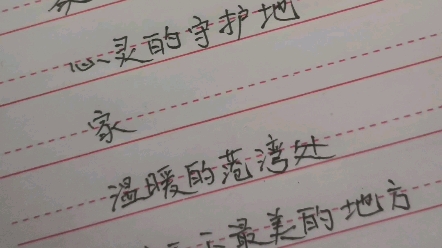 心灵的守护地
家
温暖的港湾处
最美的地方